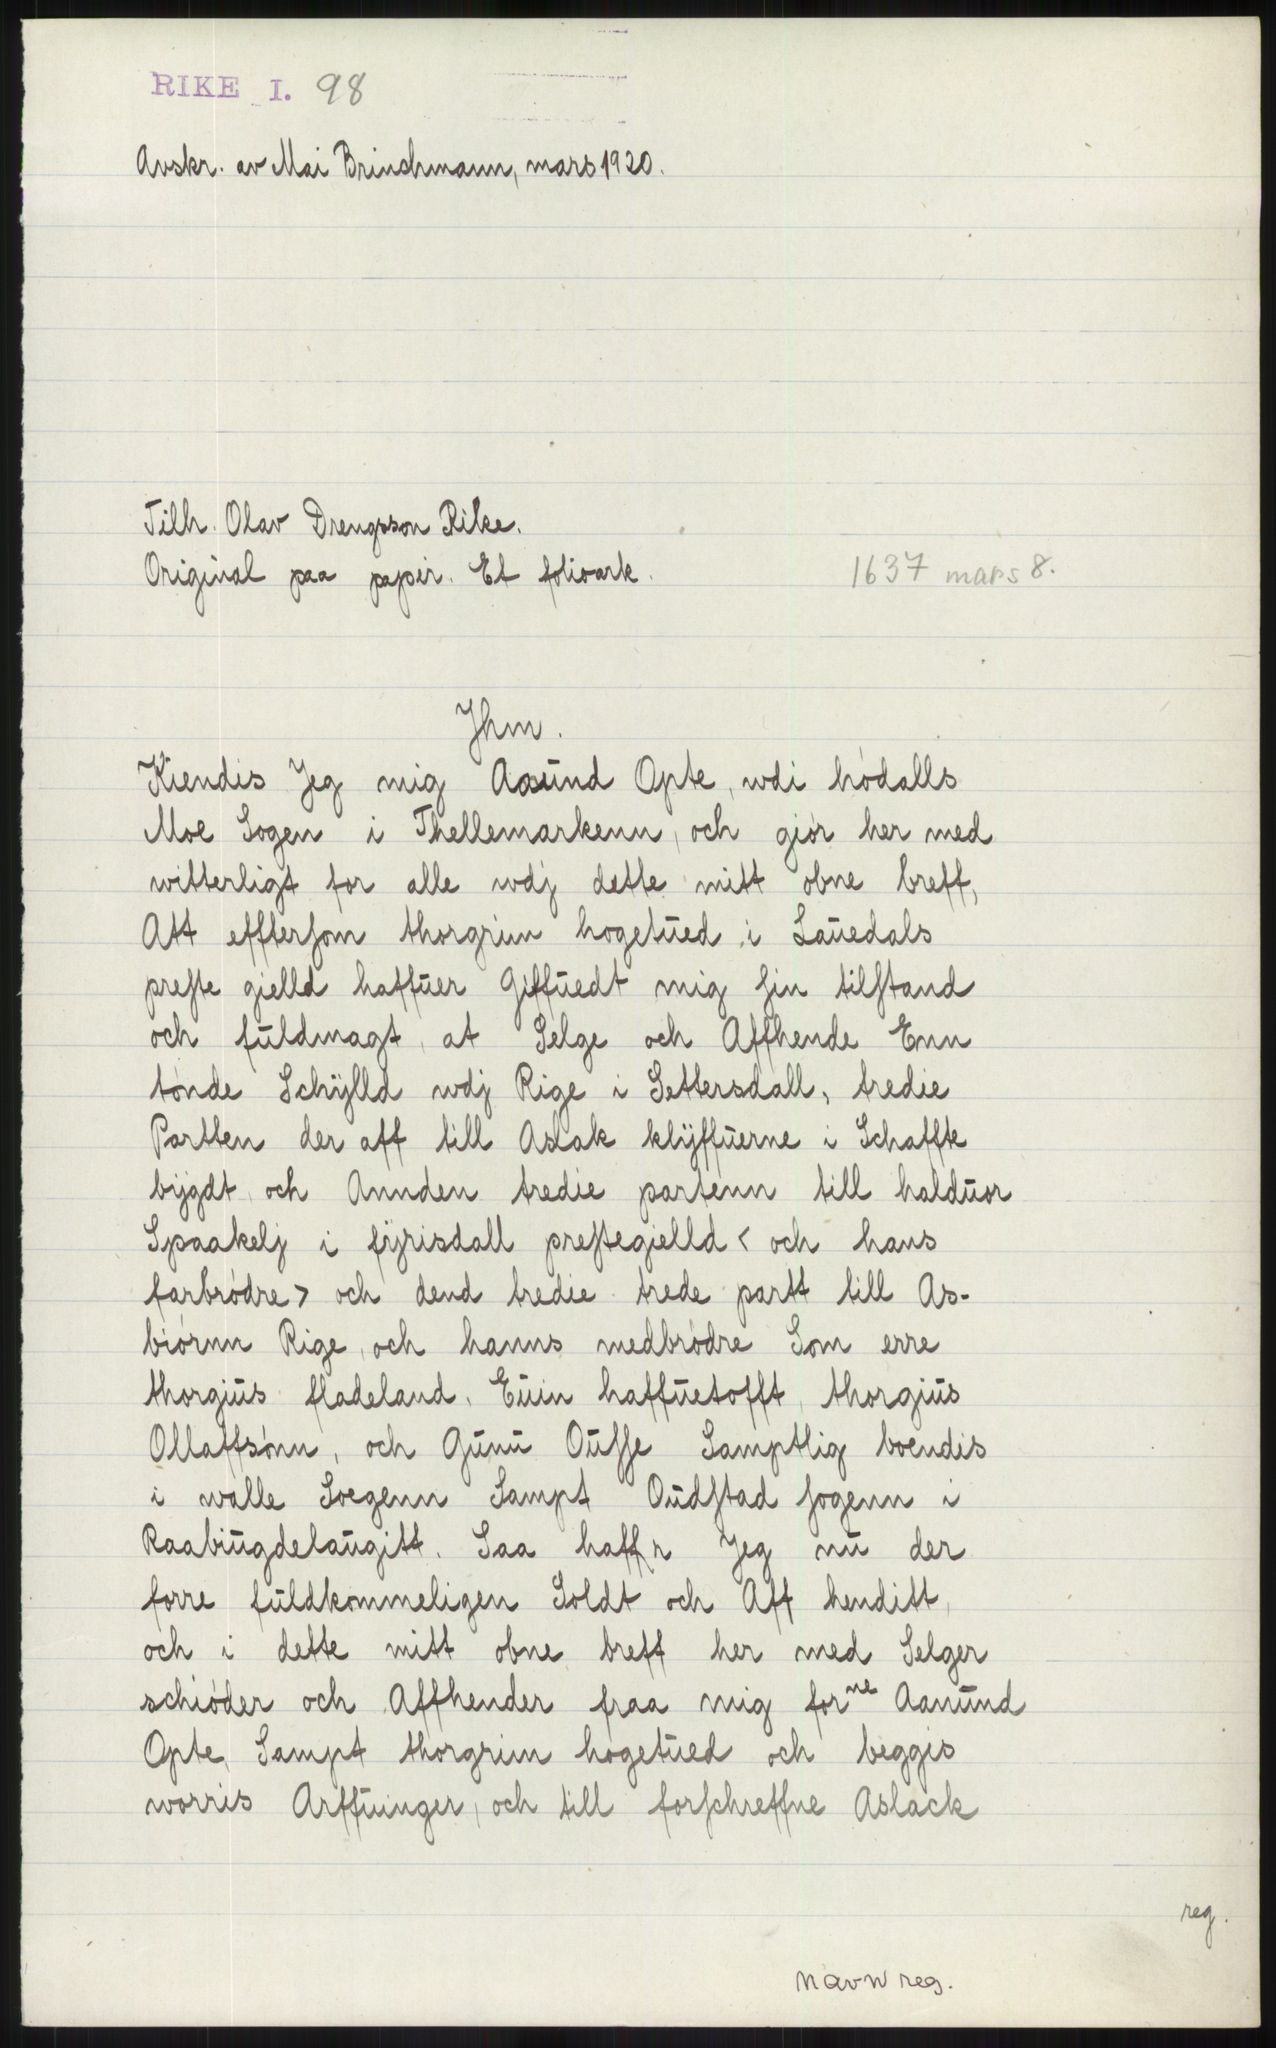 RIKE I. 98
Avskr. av Mai Brinchmann, mars 1920.
Tilh. Olav Drengsson Rike.
Original paa papir. Et folioark.
1637 mars 8.
Jhm.
Kiendis Jeg mig Aasünd Opte, wdi hódalls
Moe Sogen i Thellemarkenn, och giór her med
witterligt for alle wdj dette mitt obne breff,
Att efftersom thorgrim hogetüed i Laüedals
preste gielld haffüer Giffüedt mig sin tilstand
och füldmagt, at Selge och Affhende Enn
tónde Schÿlld wdj Rige i Settersdall, tredie
Partten der aff till Aslak klÿffüerne i Schaffte
bÿgdt, och Annden tredie partenn till haldüor
Spaakelj i fÿrisdall prestegielld < och hans
farbródre > och dend tredie trede partt till As-
biórnn Rige, och hanns medbródre Som erre
thorgiüs fladeland, Eüin haffüetofft, thorgiüs
Ollaffsónn, och Günü Oüsse Samptlig boendis
i walle Soegenn Sampt Oüdstad sogenn i
Raabiügdelaügitt. Saa haffr Jeg nü der
forre füldkommeligen Soldt och Aff henditt,
och i dette mitt obne breff her med Selger
schióder och Affhender fraa mig forne Aanünd
Opte, Sampt thorgrim hogetüed och beggis
worris Arffüinger, och till forschreffne Aslack
reg.
navn reg.